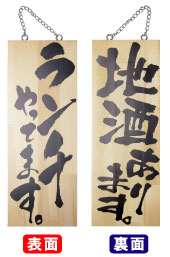 ランチ
やってます。
地酒
あります。
表面
裏面